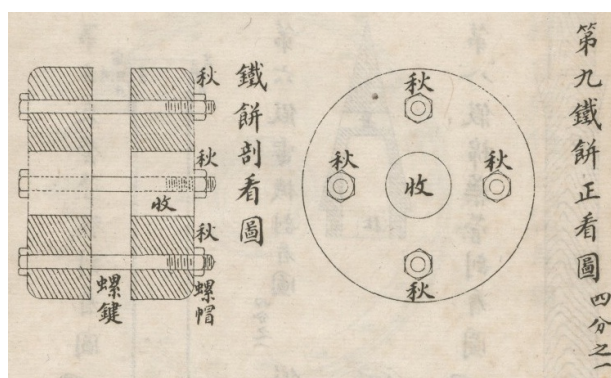 第九鐵餅正看圖
四分之一
秋
秋
收
秋
秋
鐵餅剖看圖
秋
秋
收
秋
螺鍵
螺帽